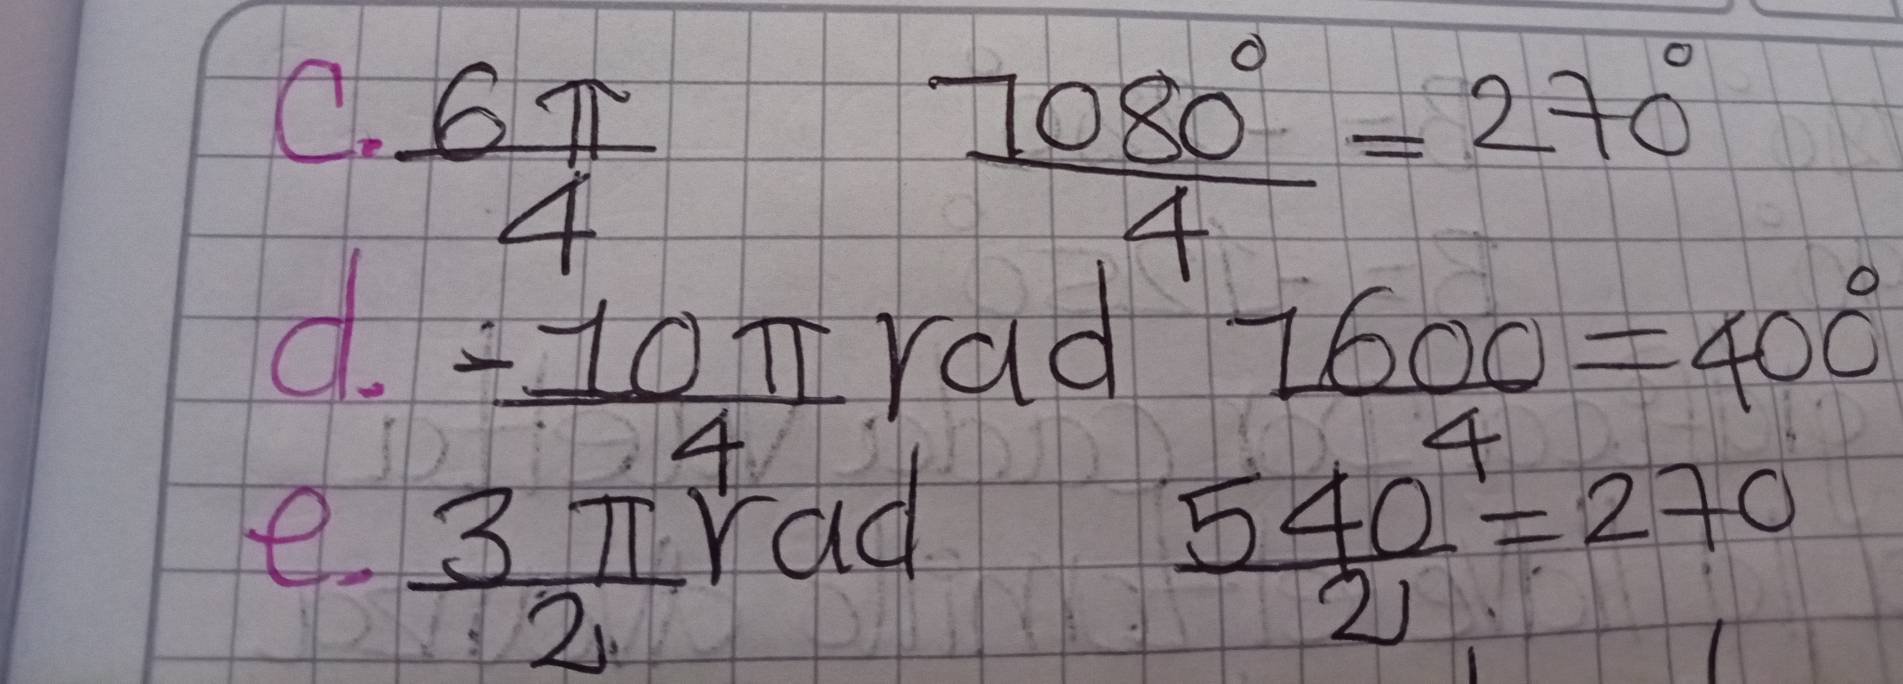 c. 6π/4 1080°/4 = 270°
d. -10π/4 rad 1600/4 = 400°
e. 3π/2 rad 540/2 = 270